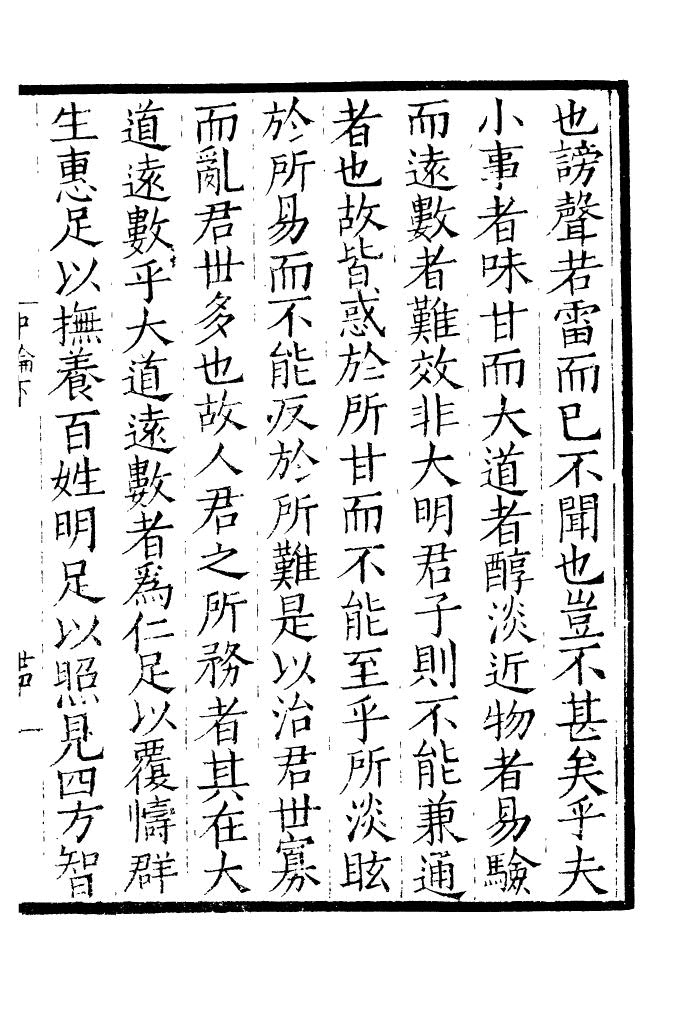 也謗聲若雷而已不聞也豈不甚矣乎夫
小事者味甘而大道者醇淡近物者易驗
而遠數者難效非大明君子則不能兼通
者也故皆惑於所甘而不能至乎所淡眩
於所易而不能反於所難是以治君世寡
而亂君世多也故人君之所務者其在大
道遠數乎大道遠數者爲仁足以覆幬群
生惠足以撫養百姓明足以照見四方智
中論下